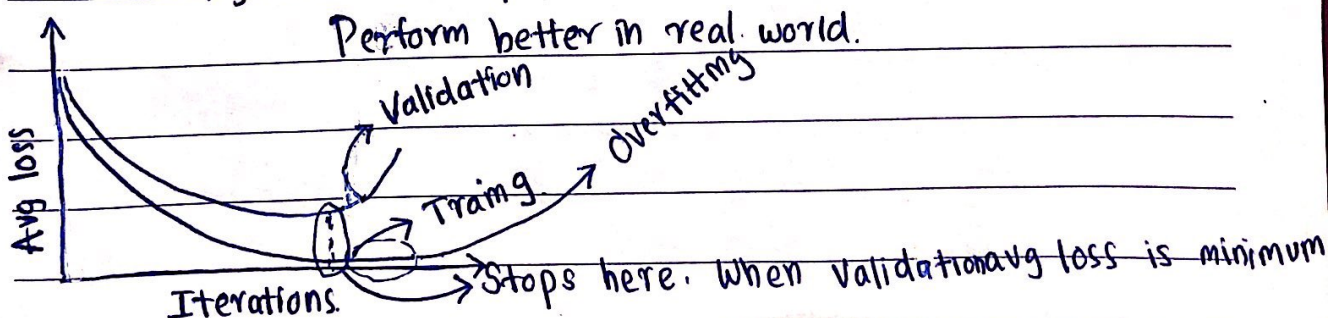 Perform better in real world.
Validation
Overfitting
Avg loss
Traing.
Stops here. When validation avg loss is minimum
Iterations.